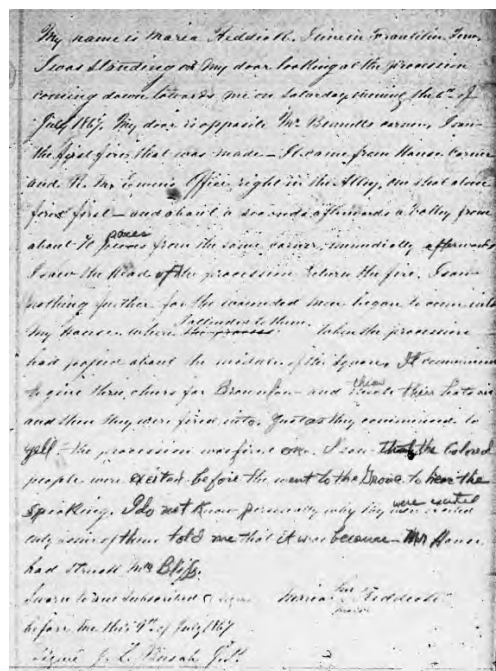 My name is Maria Reddick. I live in Franklin, Tenn.
I was standing at my door looking at the procession
coming down towards me on Saturday evening the 6th of
July 1867. My door is opposite Mr. Bennetts corner, I saw
the first fires that was made - It came from House Corner
and Mr. Ewens Office, right in the Alley, one shot alone
fired first - and about a seconds afterwards a volley from
about 70 paces from the same corner, immediatly afterwards
I saw the head of the procession return the fire. I saw
nothing further for the wounded men began to come into
my house where I attended to them. When the procession
had passed about the middle of the Square, It commenced
to give three cheers for Brownlow - and their hats
and then they were fired into. Just as they commenced to
yell - the procession was fired on. I saw that the Colored
people were excited before the went to the Grove to hear the
speaking. I do not know personally why they were excited
only some of them told me that it was because Mr House
had struck Mr Bliss.
Sworn to and Subscribed Maria her Reddick
before me this 9th of July 1867 mark
Signed J. L.